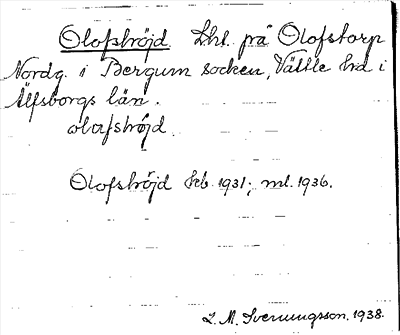 Olofshöjd Lht. på Olofstorp
Nordg. i Bergum socken, Vättle hd i
Älfsborgs län.
olofshöjd
Olofshöjd kb 1931; ml. 1936.
L. M. Svenungsson. 1938.